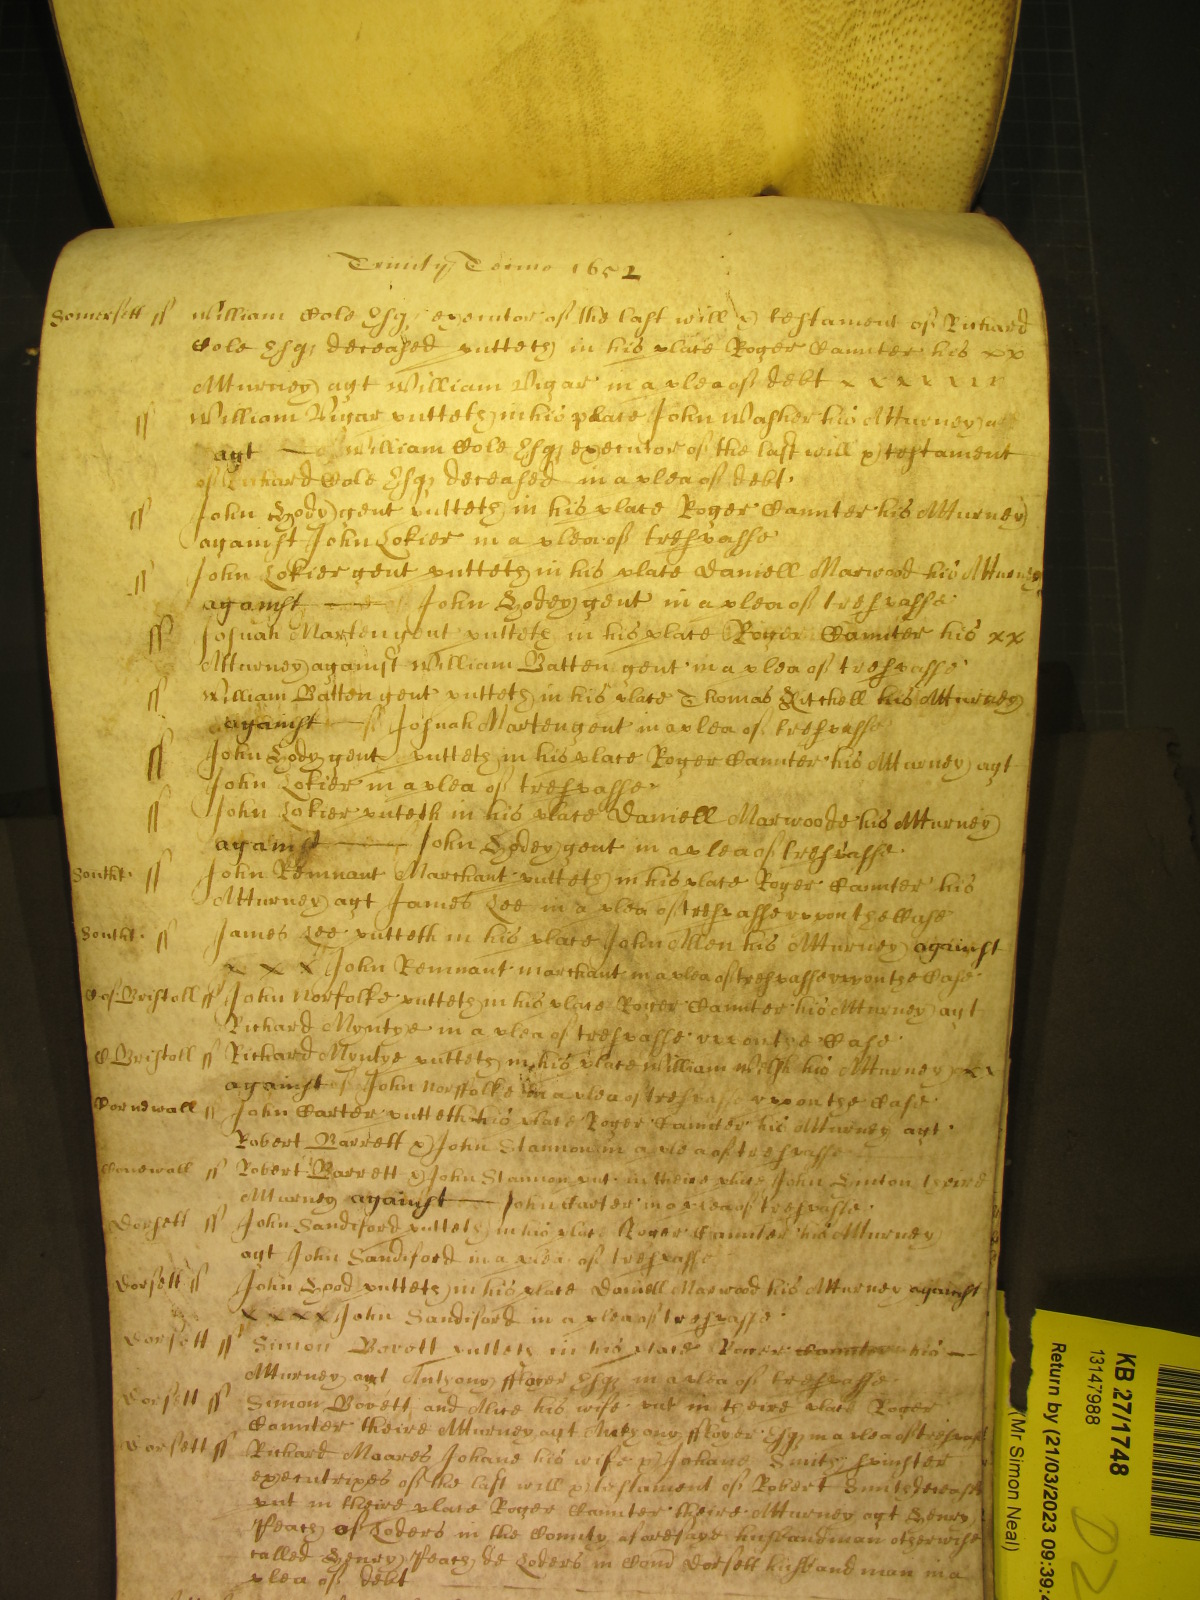 Trinity Terme 1652
Somersett ss William Cole Esq executor of the last will & testament of Richard
Cole Esq deceased putteth in his place Roger Caunter his xx
Atturney agt William Vigar in a plea of debt x x x x x x x
ss William Vigar putteth in his place John Washer his Atturney
agt William Cole Esq executor of the last will & testament
of Richard Cole Esq deceased in a plea of debt.
ss John Godey gent putteth in his place Roger Caunter his Atturney
against John Lokier in a plea of trespasse
ss John Lokier gent putteth in his place Daniell Marwood his Atturney
against John Godey gent in a plea of trespasse
ss Josuah Marten gent putteth in his place Roger Caunter his xx
Atturney against William Batten gent in a plea of trespasse
ss William Batten gent putteth in his place Thomas his Atturney
against Josuah Marten gent in a plea of trespasse
ss John Godey gent putteth in his place Roger Caunter his Atturney agt
John Lokier in a plea of trespasse
ss John Lokier puteth in his place Daniell Marwoode his Atturney
against John Godey gent in a plea of trespasse
Southt. ss John Remnant Marchant putteth in his place Roger Caunter his
Atturney agt James Lee in a plea of trespasse uppon the Case
Southt. ss James Lee putteth in his place John Allen his Atturney against
x x x John Remnant marchant in a plea of trespasse uppon the Case
C of Bristoll ss John Norfolke putteth in his place Roger Caunter his Atturney agt
Richard Myntye in a plea of trespasse uppon the Case
C Bristoll ss Richard Myntye putteth in his place William Welsh his Atturney xx
against John Norffolke in a plea of trespasse uppon the Case
Cornewall ss John Carter putteth his place Roger Caunter his Atturney agt
Robert Barrett & John Stannon in a plea of trespasse
Conewall ss Robert Barrett & John Stannon put in theire place John theire
Atturney against John Carter in a plea of trespasse
Dorsett ss John Sandiford putteth in his place Roger Caunter his Atturney
agt John Sandiford in a plea of trespasse
Dorsett ss John Good putteth in his place Daniell Marwood his Atturney against
x x x x John Sandiford in a plea of trespasse
Dorsett ss Simon Bovett putteth in his place Roger Caunter his
Atturney agt Anthony ffloyer Esq in a plea of trespasse
Dorsett ss Simon Bovett and Alice his wife put in theire place Roger
Caunter theire Atturney agt Anthony ffloyer Esq in a plea of trespasse
Dorsett ss Richard Moares Johane his wife & Johane Smith spinster
executrixes of the last will & testament of Robert Smith deceased
put in theire place Roger Caunter theire Atturney agt Henry
Peach of Loders in the County aforesaye husbandman otherwise
called Henry Peach de Loders in Com Dorsett husbandman in a
plea of debt
KB 27/1748
13147988
Return by (21/03/2023 09:39:4
(Mr Simon Neal)
D2